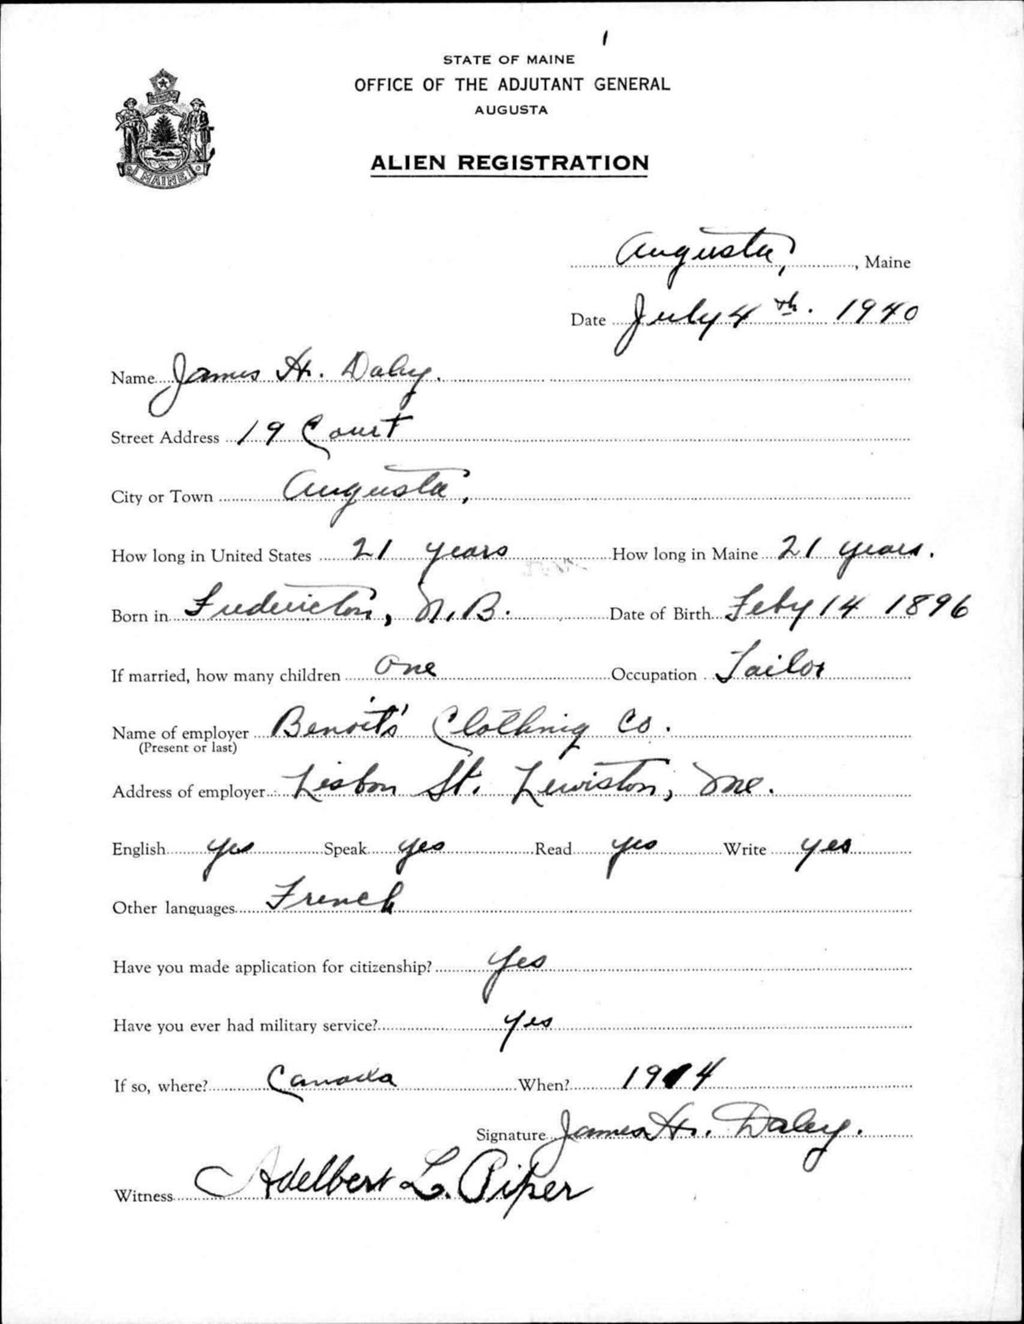 STATE OF MAINE
OFFICE OF THE ADJUTANT GENERAL
AUGUSTA
MAINE
ALIEN REGISTRATION
Augusta, , Maine
Date July 4th. 1940
Name James H. Daley.
Street Address 19 Court
City or Town Augusta,
How long in United States 21 years How long in Maine 21 years.
Born in Fredericton, N.B. Date of Birth Feby 14 1896
If married, how many children One Occupation Tailor
Name of employer Benoit's Clothing Co.
(Present or last)
Address of employer Lisbon St. Lewiston, Me.
English yes Speak yes Read yes Write yes
Other languages French
Have you made application for citizenship? Yes
Have you ever had military service? Yes
If so, where? Canada When? 1914
Signature James H. Daley.
Witness Adelbert L. Piper